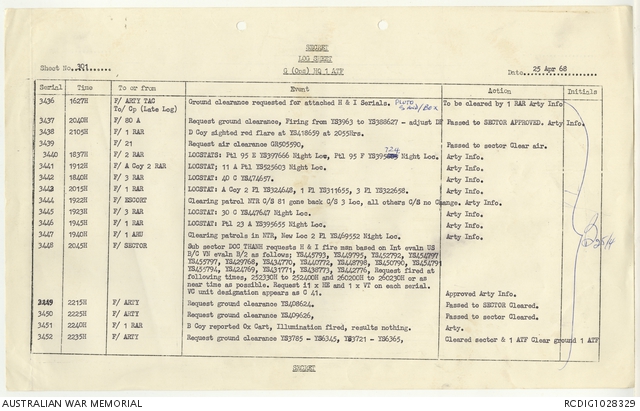 SECRET
LOG SHEET
G (Ops) HQ 1 ATF
Sheet No. 391
Date 25 Apr 68
Serial Time To or from Event Action Initials
3436 1627H F/ ARTY TAC Ground clearance requested for attached H & I Serials. To be cleared by 1 RAR Arty Info.
To/ Cp (Late Log)
3437 2040H F/ 80 A Request ground clearance, Firing from YS3963 to YS388627 - adjust DF Passed to SECTOR APPROVED. Arty Info.
3438 2105H F/ 1 RAR D Coy sighted red flare at YS418659 at 2055Hrs.
3439 F/ 21 Request air clearance GR505590. Passed to sector Clear air.
3440 1837H F/ 2 RAR LOCSTATS: Ptl 95 E YS397666 Night Loc, Ptl 95 F YS395 724 Night Loc. Arty Info.
3441 1912H F/ A Coy 2 RAR LOCSTAT; 11 A Ptl YS525603 Night Loc. Arty Info.
3442 1840H F/ 3 RAR LOCSTAT: 40 C YS474657. Arty Info.
3443 2015H F/ 1 RAR LOCSTAT: A Coy 2 Pl YS324648, 1 Pl YS311655, 3 Pl YS322658. Arty Info.
3444 1922H F/ ESCORT Clearing patrol NTR C/S 81 gone back C/S 3 Loc, all others C/S no Change. Arty Info.
3445 1923H F/ 3 RAR LOCSTAT: 30 C YS447647 Night Loc. Arty Info.
3446 1945H F/ 1 RAR LOCSTAT: Ptl 23 A YS395655 Night Loc. Arty Info.
3447 1940H F/ 1 ARU Clearing patrols in NTR, New Loc 2 Pl YS469552 Night Loc. Arty Info.
3448 2045H F/ SECTOR Sub sector DOC THANH requests H & I fire msn based on Int evaln US
B/C VN evaln B/2 as follows; YS445793, YS449795, YS452792, YS454797
YS455797, YS429768, YS434770, YS440772, YS448798, YS450790, YS454791
YS455794, YS424769, YS431771, YS438773, YS442776, Request fired at
following times, 252330H to 252400H and 260200H to 260230H or as
near time as possible. Request 11 x HE and 1 x VT on each serial.
VC unit designation appears as C 41. Approved Arty Info.
3449 2215H F/ ARTY Request ground clearance YS408624. Passed to SECTOR Cleared.
3450 2225H F/ ARTY Request ground clearance YS409626. Passed to sector Cleared.
3451 2240H F/ 1 RAR B Coy reported Ox Cart, Illumination fired, results nothing. Arty.
3452 2235H F/ ARTY Request ground clearance YS3785 - YS6345, YS3721 - YS6365, Cleared sector & 1 ATF Clear ground 1 ATF
SECRET
AUSTRALIAN WAR MEMORIAL
RCDIG1028329